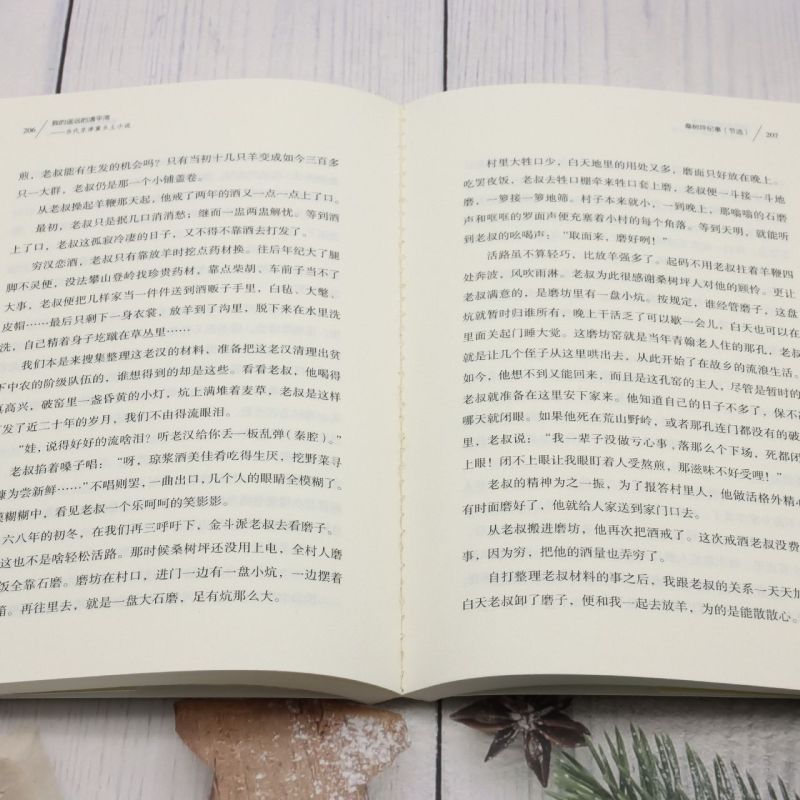 206
我的遥远的清平湾
——当代京津冀乡土小说
煎，老叔能有生发的机会吗？只有当初十几只羊变成如今三百多
只一大群，老叔仍是那一个小铺盖卷。
从老叔操起羊鞭那天起，他戒了两年的酒又一点一点上了口。
最初，老叔只是抿几口消消愁；继而一盅两盅解忧。等到酒
上了口，老叔这孤寂冷凄的日子，又不得不靠酒去打发了。
穷汉恋酒，老叔只有靠放羊时挖点药材换。往后年纪大了腿
脚不灵便，没法攀山登岭找珍贵药材，靠点柴胡、车前子当不了
大事，老叔便把几样家当一件件送到酒贩子手里，白毡、大氅、
皮帽……最后只剩下一身衣裳，放羊到了沟里，脱下来在水里洗
洗，自己精着身子圪蹴在草丛里……
我们本是来搜集整理这老汉的材料，准备把这老汉清理出贫
下中农的阶级队伍的，谁想得到的却是这些。看看老叔，他喝得
真高兴，破窑里一盏昏黄的小灯，炕上满堆着麦草，老叔是这样
发了近二十年的岁月，我们不由得流眼泪。
“娃，说得好好的流啥泪？听老汉给你丢一板乱弹（秦腔）。”
老叔掐着嗓子唱：“呀，琼浆酒美佳肴吃得生厌，挖野菜寻
糠为尝新鲜……”不唱则罢，一曲出口，几个人的眼睛全模糊了。
模糊糊中，看见老叔一个乐呵呵的笑影影。
六八年的初冬，在我们再三呼吁下，金斗派老叔去看磨子。
这也不是啥轻松活路。那时候桑树坪还没用上电，全村人磨
饭全靠石磨。磨坊在村口，进门一边有一盘小炕，一边摆着
箱。再往里去，就是一盘大石磨，足有炕那么大。
桑树坪纪事（节选）
207
村里大牲口少，白天地里的用处又多，磨面只好放在晚上。
吃罢夜饭，老叔去牲口棚牵来牲口套上磨，老叔便一斗接一斗地
磨，一箩接一箩地筛。村子本来就小，一到晚上，那嗡嗡的石磨
声和哐哐的罗面声便充塞着小村的每个角落。等到天明，就能听
到老叔的吆喝声：“取面来，磨好咧！”
活路虽不算轻巧，比放羊强多了。起码不用老叔拄着羊鞭四
处奔波，风吹雨淋。老叔为此很感谢桑树坪人对他的顾怜。更让
老叔满意的，是磨坊里有一盘小炕。按规定，谁经管磨子，这盘
炕就暂时归谁所有，晚上干活乏了可以歇一会儿，白天也可以在
里面关起门睡大觉。这磨坊窑就是当年青翰老人住的那孔，老叔
就是让几个侄子从这里哄出去，从此开始了在故乡的流浪生活。
如今，他想不到又能回来，而且是这孔窑的主人，尽管是暂时的
老叔就准备在这里安下家来。他知道自己的日子不多了，保不
哪天就闭眼。如果他死在荒山野岭，或者那孔连门都没有的破
里，老叔说：“我一辈子没做亏心事，落那么个下场，死都闭
上眼！闭不上眼让我眼盯着人受熬煎，那滋味不好受哩！”
老叔的精神为之一振，为了报答村里人，他做活格外精心
有时面磨好了，他就给人家送到家门口去。
从老叔搬进磨坊，他再次把酒戒了。这次戒酒老叔没费
事，因为穷，把他的酒量也弄穷了。
自打整理老叔材料的事之后，我跟老叔的关系一天天加
白天老叔卸了磨子，便和我一起去放羊，为的是能散散心。